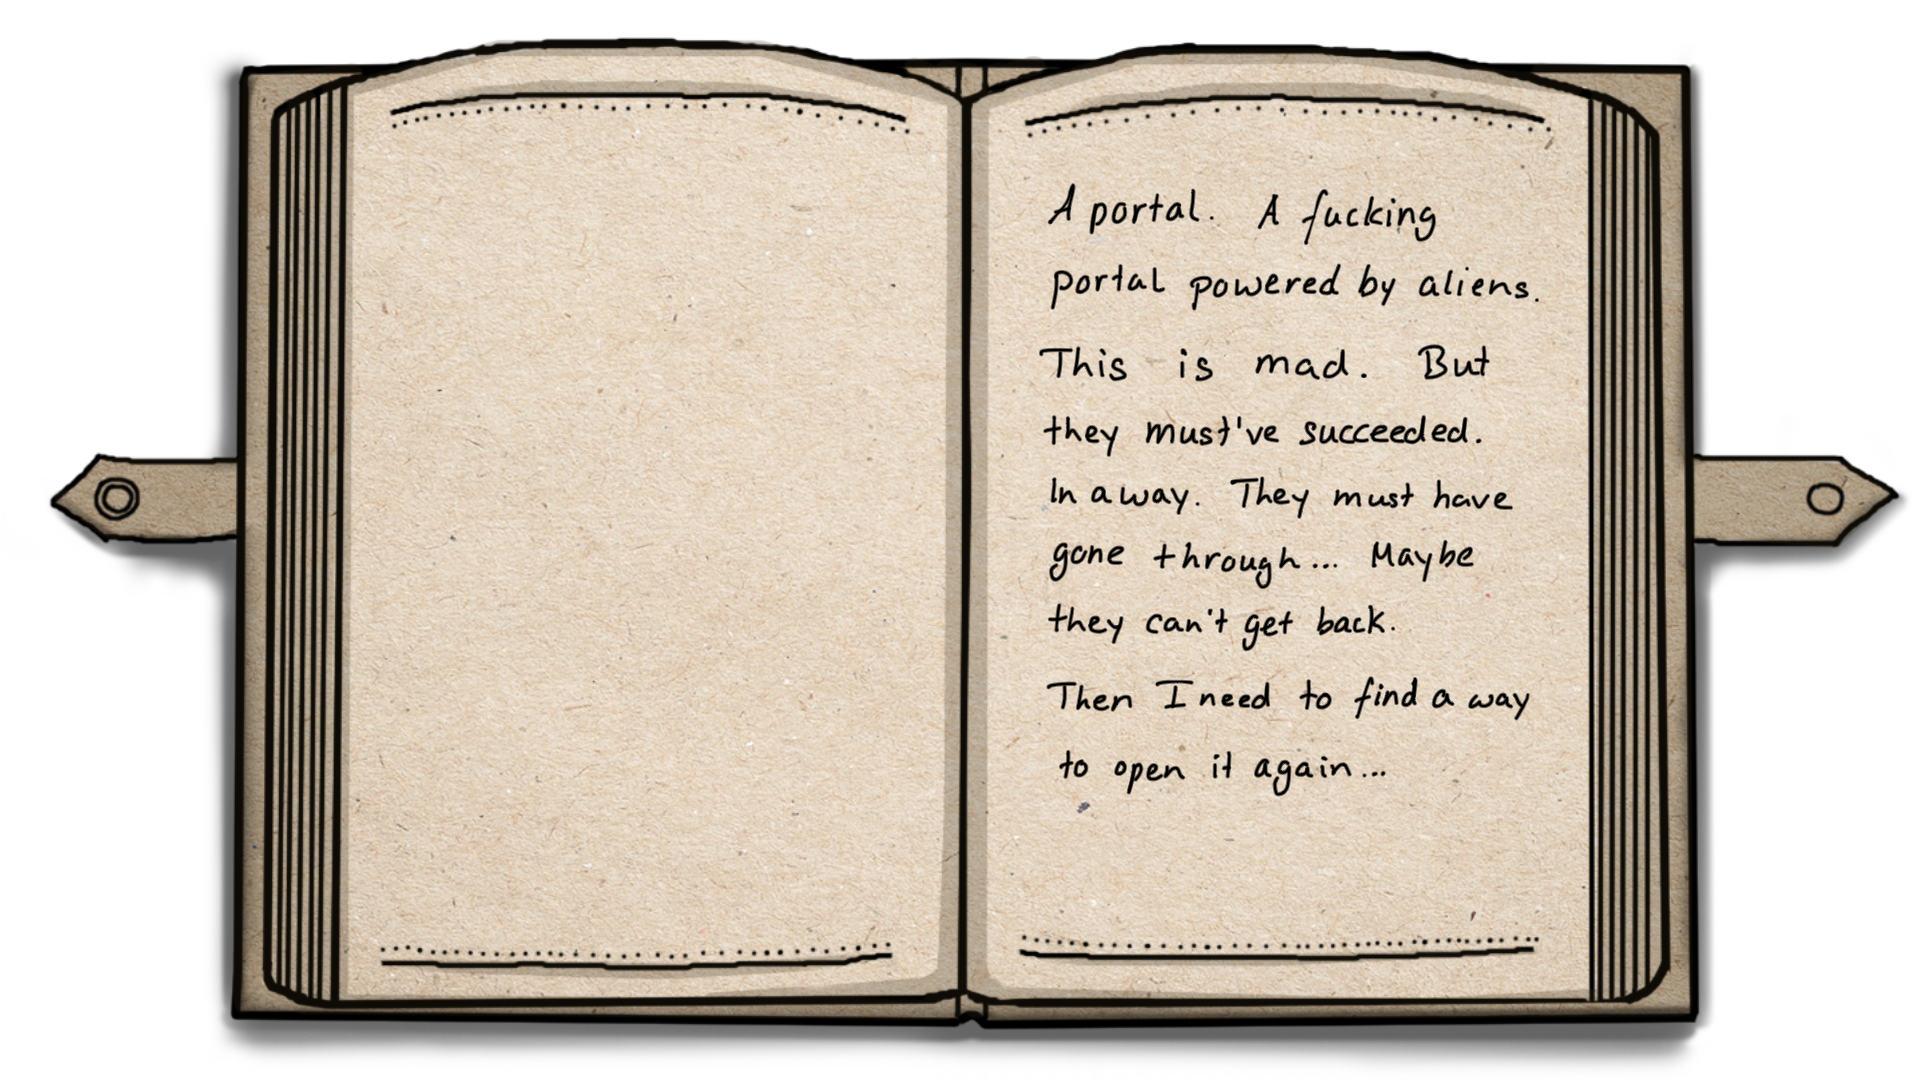 A portal. A fucking
portal powered by aliens.
This is mad. But
they must've succeeded.
In a way. They must have
gone through... Maybe
they can't get back.
Then I need to find a way
to open it again...